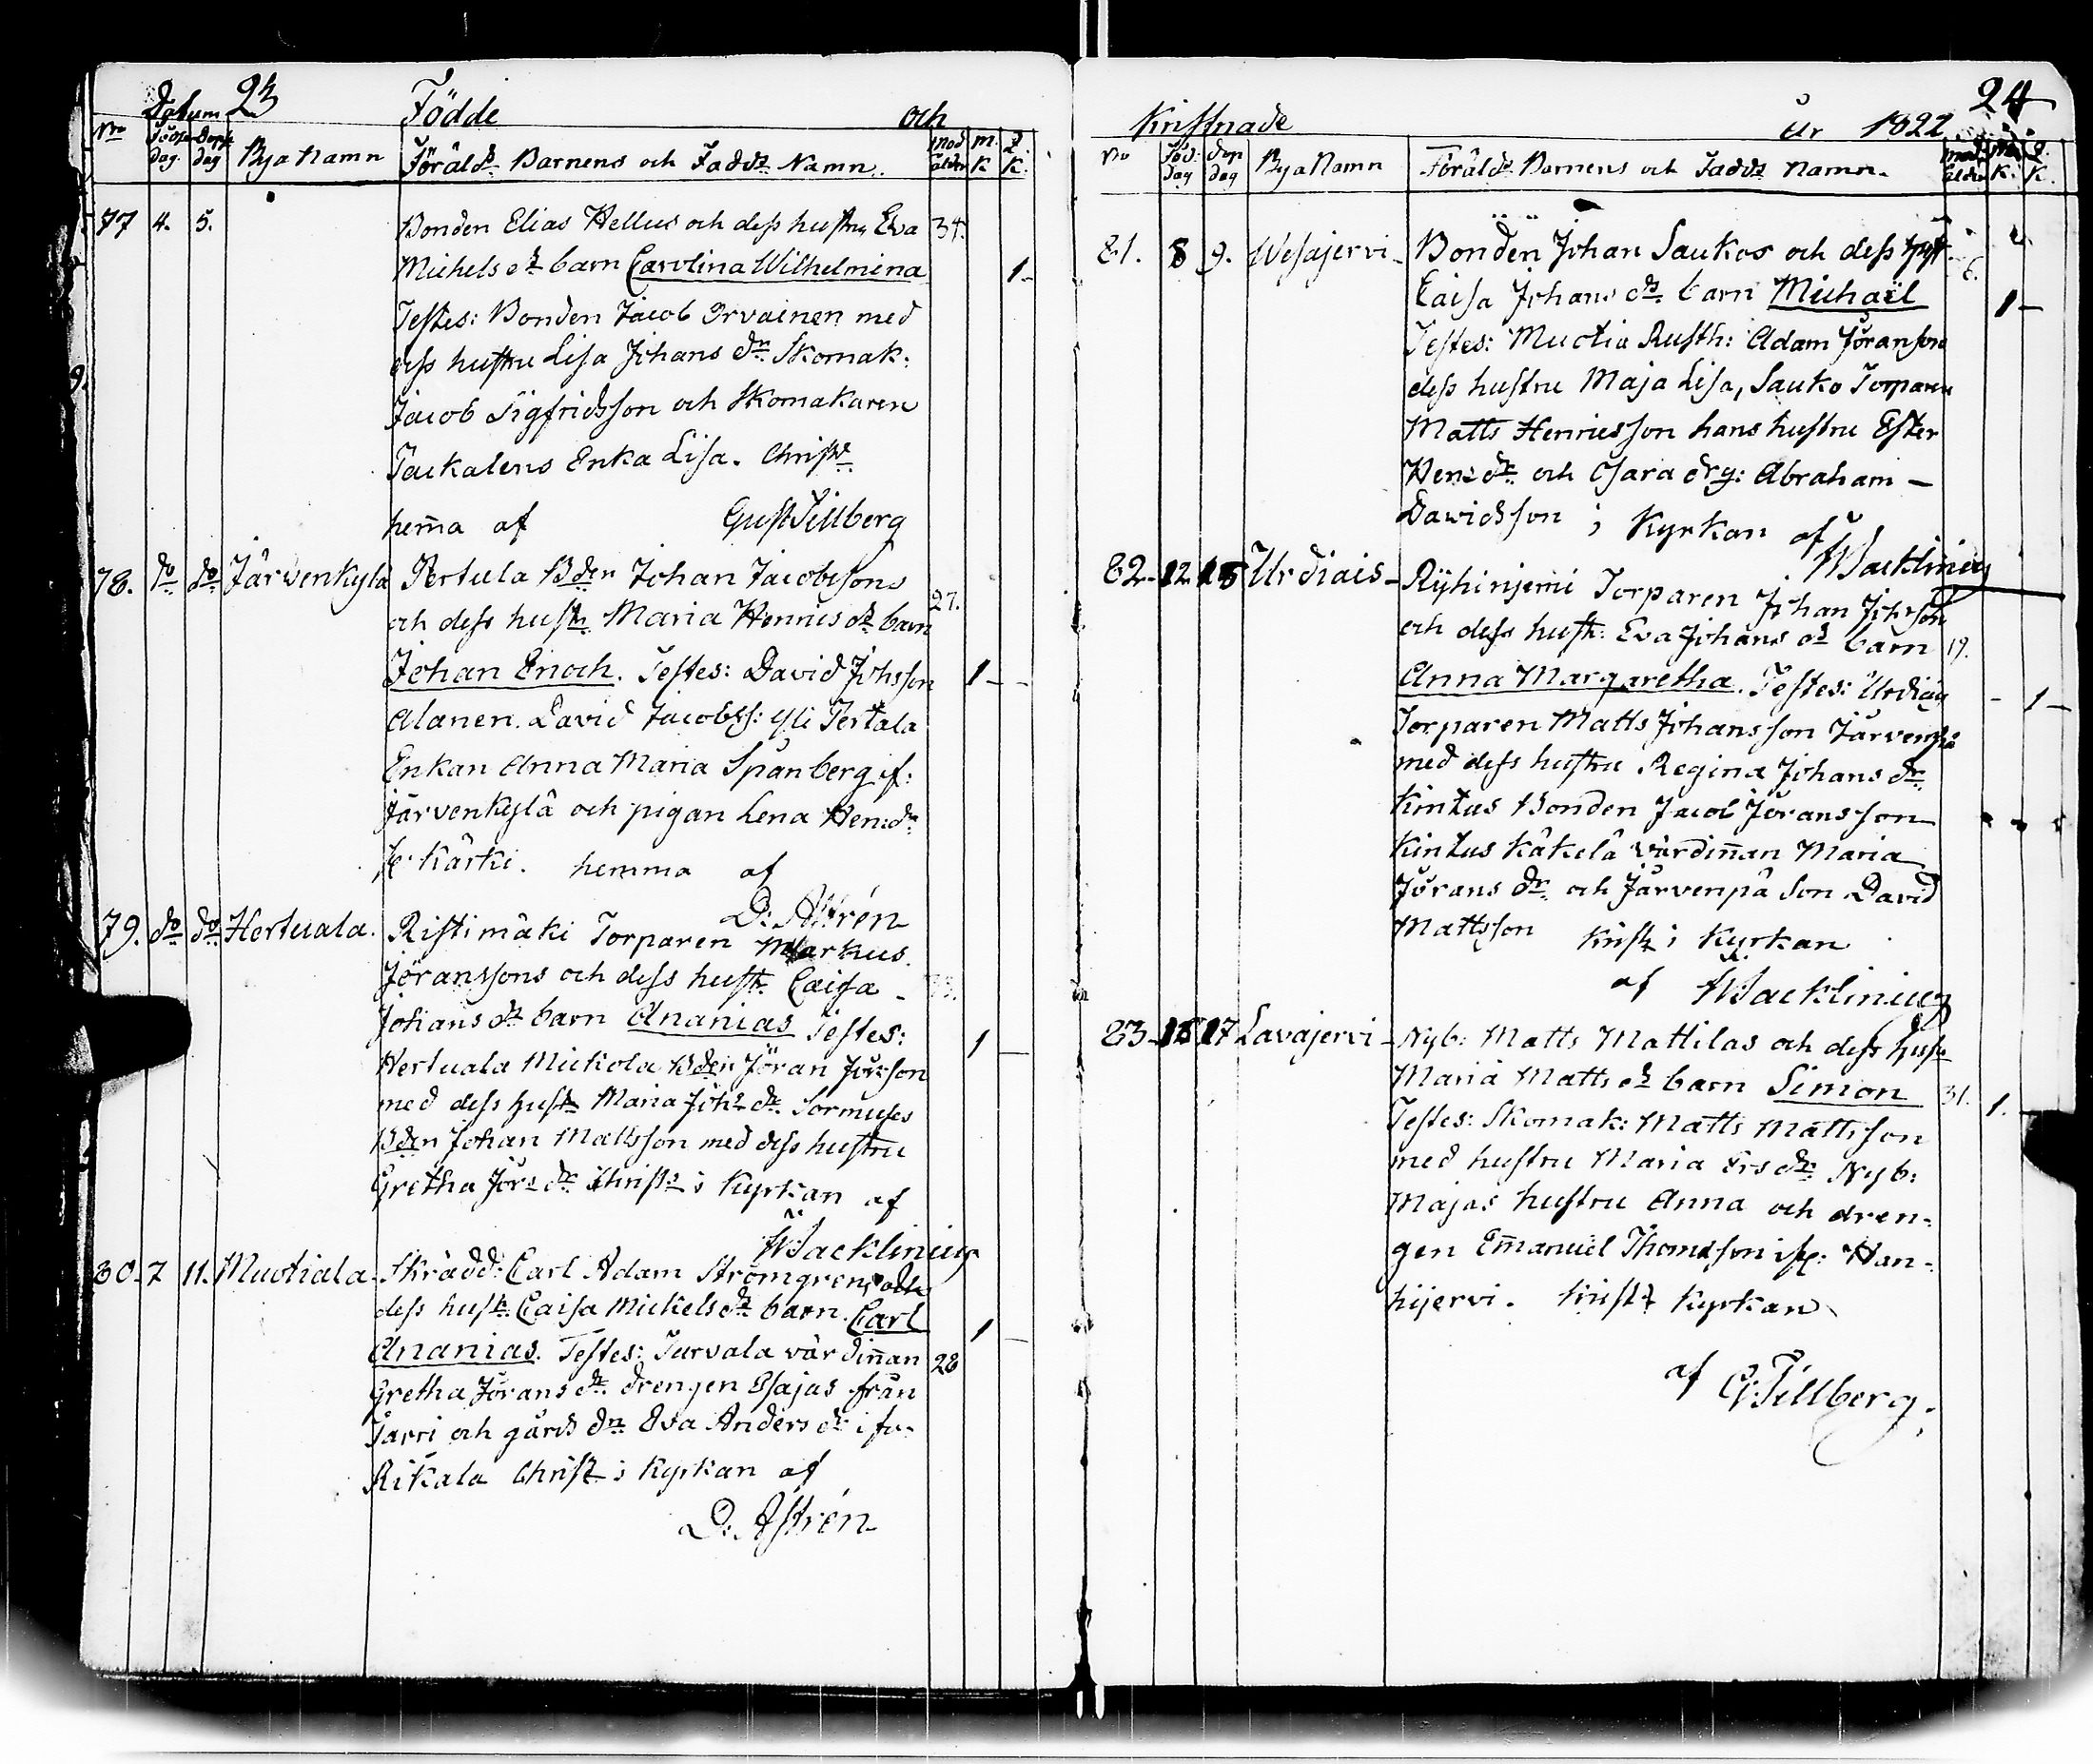 23
Födde och
Datum
No Födse dag. Dop dag Bya Namn Föräld:r Barnens och Fadd:r Namn. Mod ålder M. K Q. K.
77 4. 5. Bonden Elias Hellus och dess hustru Eva 34.
Michels dr barn Carolina Wilhelmina 1
Testes: Bonden Jacob Orvainen med
dess hustru Lisa Johans dr Skomak:
Jacob Sigfridsson och Skomakaren
Enka Lisa. Christ
hem̄a af Gust Tillberg
78. do do Järvenkylä Pertula Bden Johan Jacobssons 27.
och dess hustr Maria Henrics dr barn
Johan Enoch. Testes: David Johsson 1
Alanen. David Jacobss: Yli Pertala
Enkan Anna Maria Spanberg if:
Järvenkylä och pigan Lena Hen: dr
Kärki. hemma af
D: Astrén
79. do do Hertuala. Ristimäki Torparen Markus
Jöranssons och dess hustr Caisa
Johans dr barn Ananias Testes: 1
Hertuala Mickola Bden Jöran Jörsson
med dess hustr Maria Joh: dr Sormuses
Bden Johan Mattsson med dess hustru
Gretha Jör: dr Christ: i Kyrkan af
Wacklinius
80. 7 11. Muotiala Skrädd: Carl Adam Strömgrens och
dess hustr Caisa Mickels dr barn Carl 1
Ananias. Testes: Turvala värdin̄an 28
Gretha Jörans dr drengen Esajas från
Jarri och gårds dn Eva Anders dr ifr
Rikala Christ i Kyrkan af
D: Astrén
24
Kristnade År 1822
No Föd: dag Dop dag Bya Namn Föräld: Barnens och Fadd:r Namn. Mod ålder M. K. Q. K.
81. 8 9. Wesajervi Bonden Johan Saukos och dess hust
Caisa Johans dr barn Michaël 1
Testes: Muotia Rusth: Adam Jöransson
dess hustru Maja Lisa, Sauko Torparen
Matts Henricsson hans hustru Ester
Hen: dr och Sara drg: Abraham
Davidsson i Kyrkan af
Wacklinius
82 12 15 Urdiais Ryhinjemi Torparen Johan Johsson
och dess hustr: Eva Johans dr barn 19.
Anna Margaretha. Testes: Urdian 1
Torparen Matts Johansson Järvenpä
med dess hustru Regina Johans dr
Kintus Bonden Jacob Jöransson
Kintus Käkelä värdin̄an Maria
Jörans dr och Järvenpä Son David
Mattsson Krist i Kyrkan
af Wacklinius
83 15 17 Lavajervi Nyb: Matts Mattilas och dess hustru
Maria Matts dr barn Simon 31. 1.
Testes: Skomak: Matts Mattsson
med hustru Maria Ers dr Nyb:
Majas hustru Anna och dren-
gen Em̄anuel Thomasson ifr: Han-
hijervi. Krist i Kyrkan
af G: Tillberg.